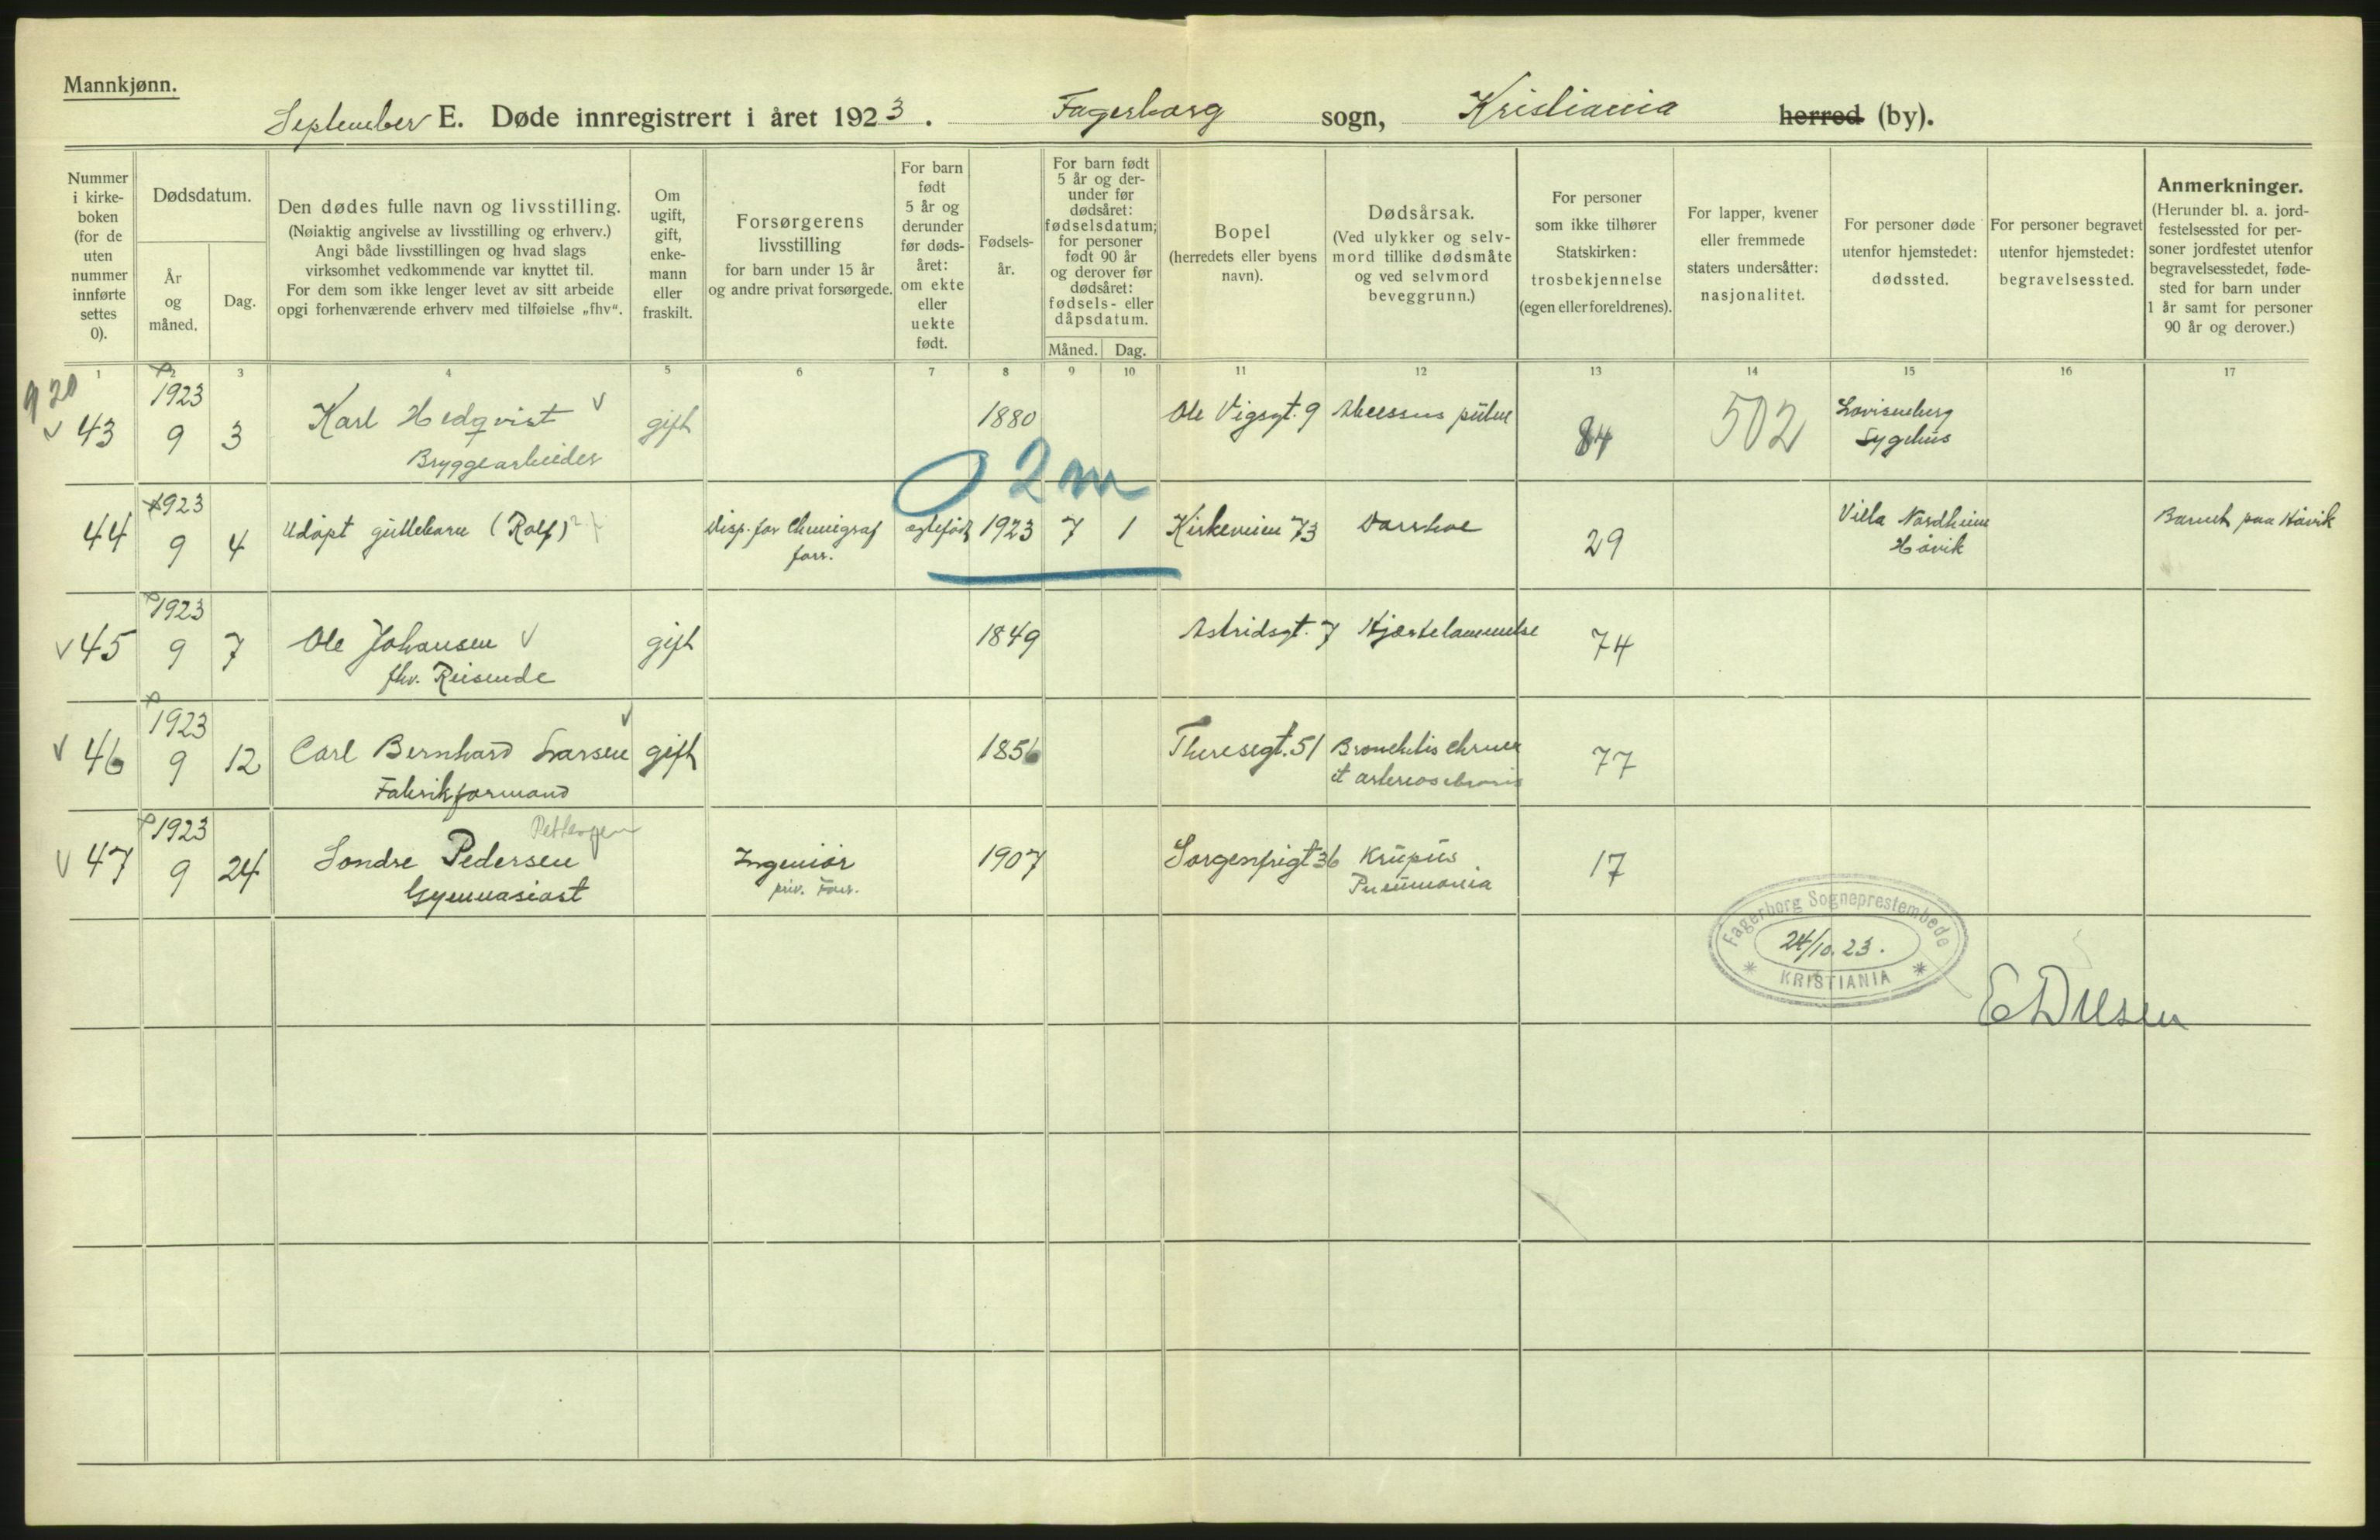 Mannkjønn.
September E. Døde innregistrert i året 1923. Fagerborg sogn, Kristiania herred (by).
Nummer i kirke- boken (for de uten nummer innførte settes 0).
Dødsdatum.
År og måned.
Dag.
Den dødes fulle navn og livsstilling.
(Nøiaktig angivelse av livsstilling og erhverv.)
Angi både livsstillingen og hvad slags
virksomhet vedkommende var knyttet til.
For dem som ikke lenger levet av sitt arbeide
opgi forhenværende erhverv med tilføielse „fhv“.
Om ugift, gift, enke- mann eller fraskilt.
Forsørgerens livsstilling
for barn under 15 år
og andre privat forsørgede.
For barn født 5 år og derunder før døds- året: om ekte eller uekte født.
Fødsels- år.
For barn født 5 år og der- under før dødsåret: fødselsdatum; for personer født 90 år og derover før dødsåret: fødsels- eller dåpsdatum.
Måned. Dag.
Bopel
(herredets eller byens navn).
Dødsårsak.
(Ved ulykker og selv- mord tillike dødsmåte og ved selvmord beveggrunn.)
For personer som ikke tilhører Statskirken: trosbekjennelse (egen eller foreldrenes).
For lapper, kvener eller fremmede staters undersåtter: nasjonalitet.
For personer døde utenfor hjemstedet: dødssted.
For personer begravet utenfor hjemstedet: begravelsessted.
Anmerkninger.
(Herunder bl. a. jord- festelsessted for per- soner jordfestet utenfor begravelsesstedet, føde- sted for barn under 1 år samt for personer 90 år og derover.)
1 2 3 4 5 6 7 8 9 10 11 12 13 14 15 16 17
920
43 1923 9 3 Karl Hedqvist gift 1880 Ole Vigsgt. 9 84 502 Lovisenberg
Bryggearbeider Sygehus
2 m
44 1923 9 4 Udøpt guttebarn (Rolf) Disp. for Chemigraf ægtefødt 1923 7 1 Kirkeveien 73 29 Villa Nordheim Barnet paa Høvik
fors. Høvik
45 1923 9 7 Ole Johansen gift 1849 Astridsgt. 7 Hjertelammelse 74
fhv. Reisende
46 1923 9 12 Carl Bernhard Larsen gift 1856 Theresegt. 51 Bronchitis 77
Fabrikformand et
Pettersen
47 1923 9 24 Sondre Pedersen Ingeniør 1907 Sorgenfrigt 36 Krupøs 17
Gymnasiast priv. Fors. Pneumonia
Fagerborg Sogneprestembede
24/10. 23.
* KRISTIANIA *